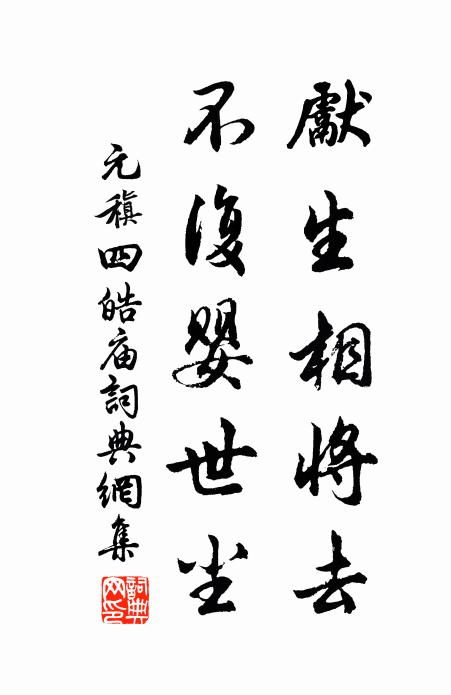 獻生相將去
不復嬰世尘
元稹四皓庙詞典網集
詞典網印